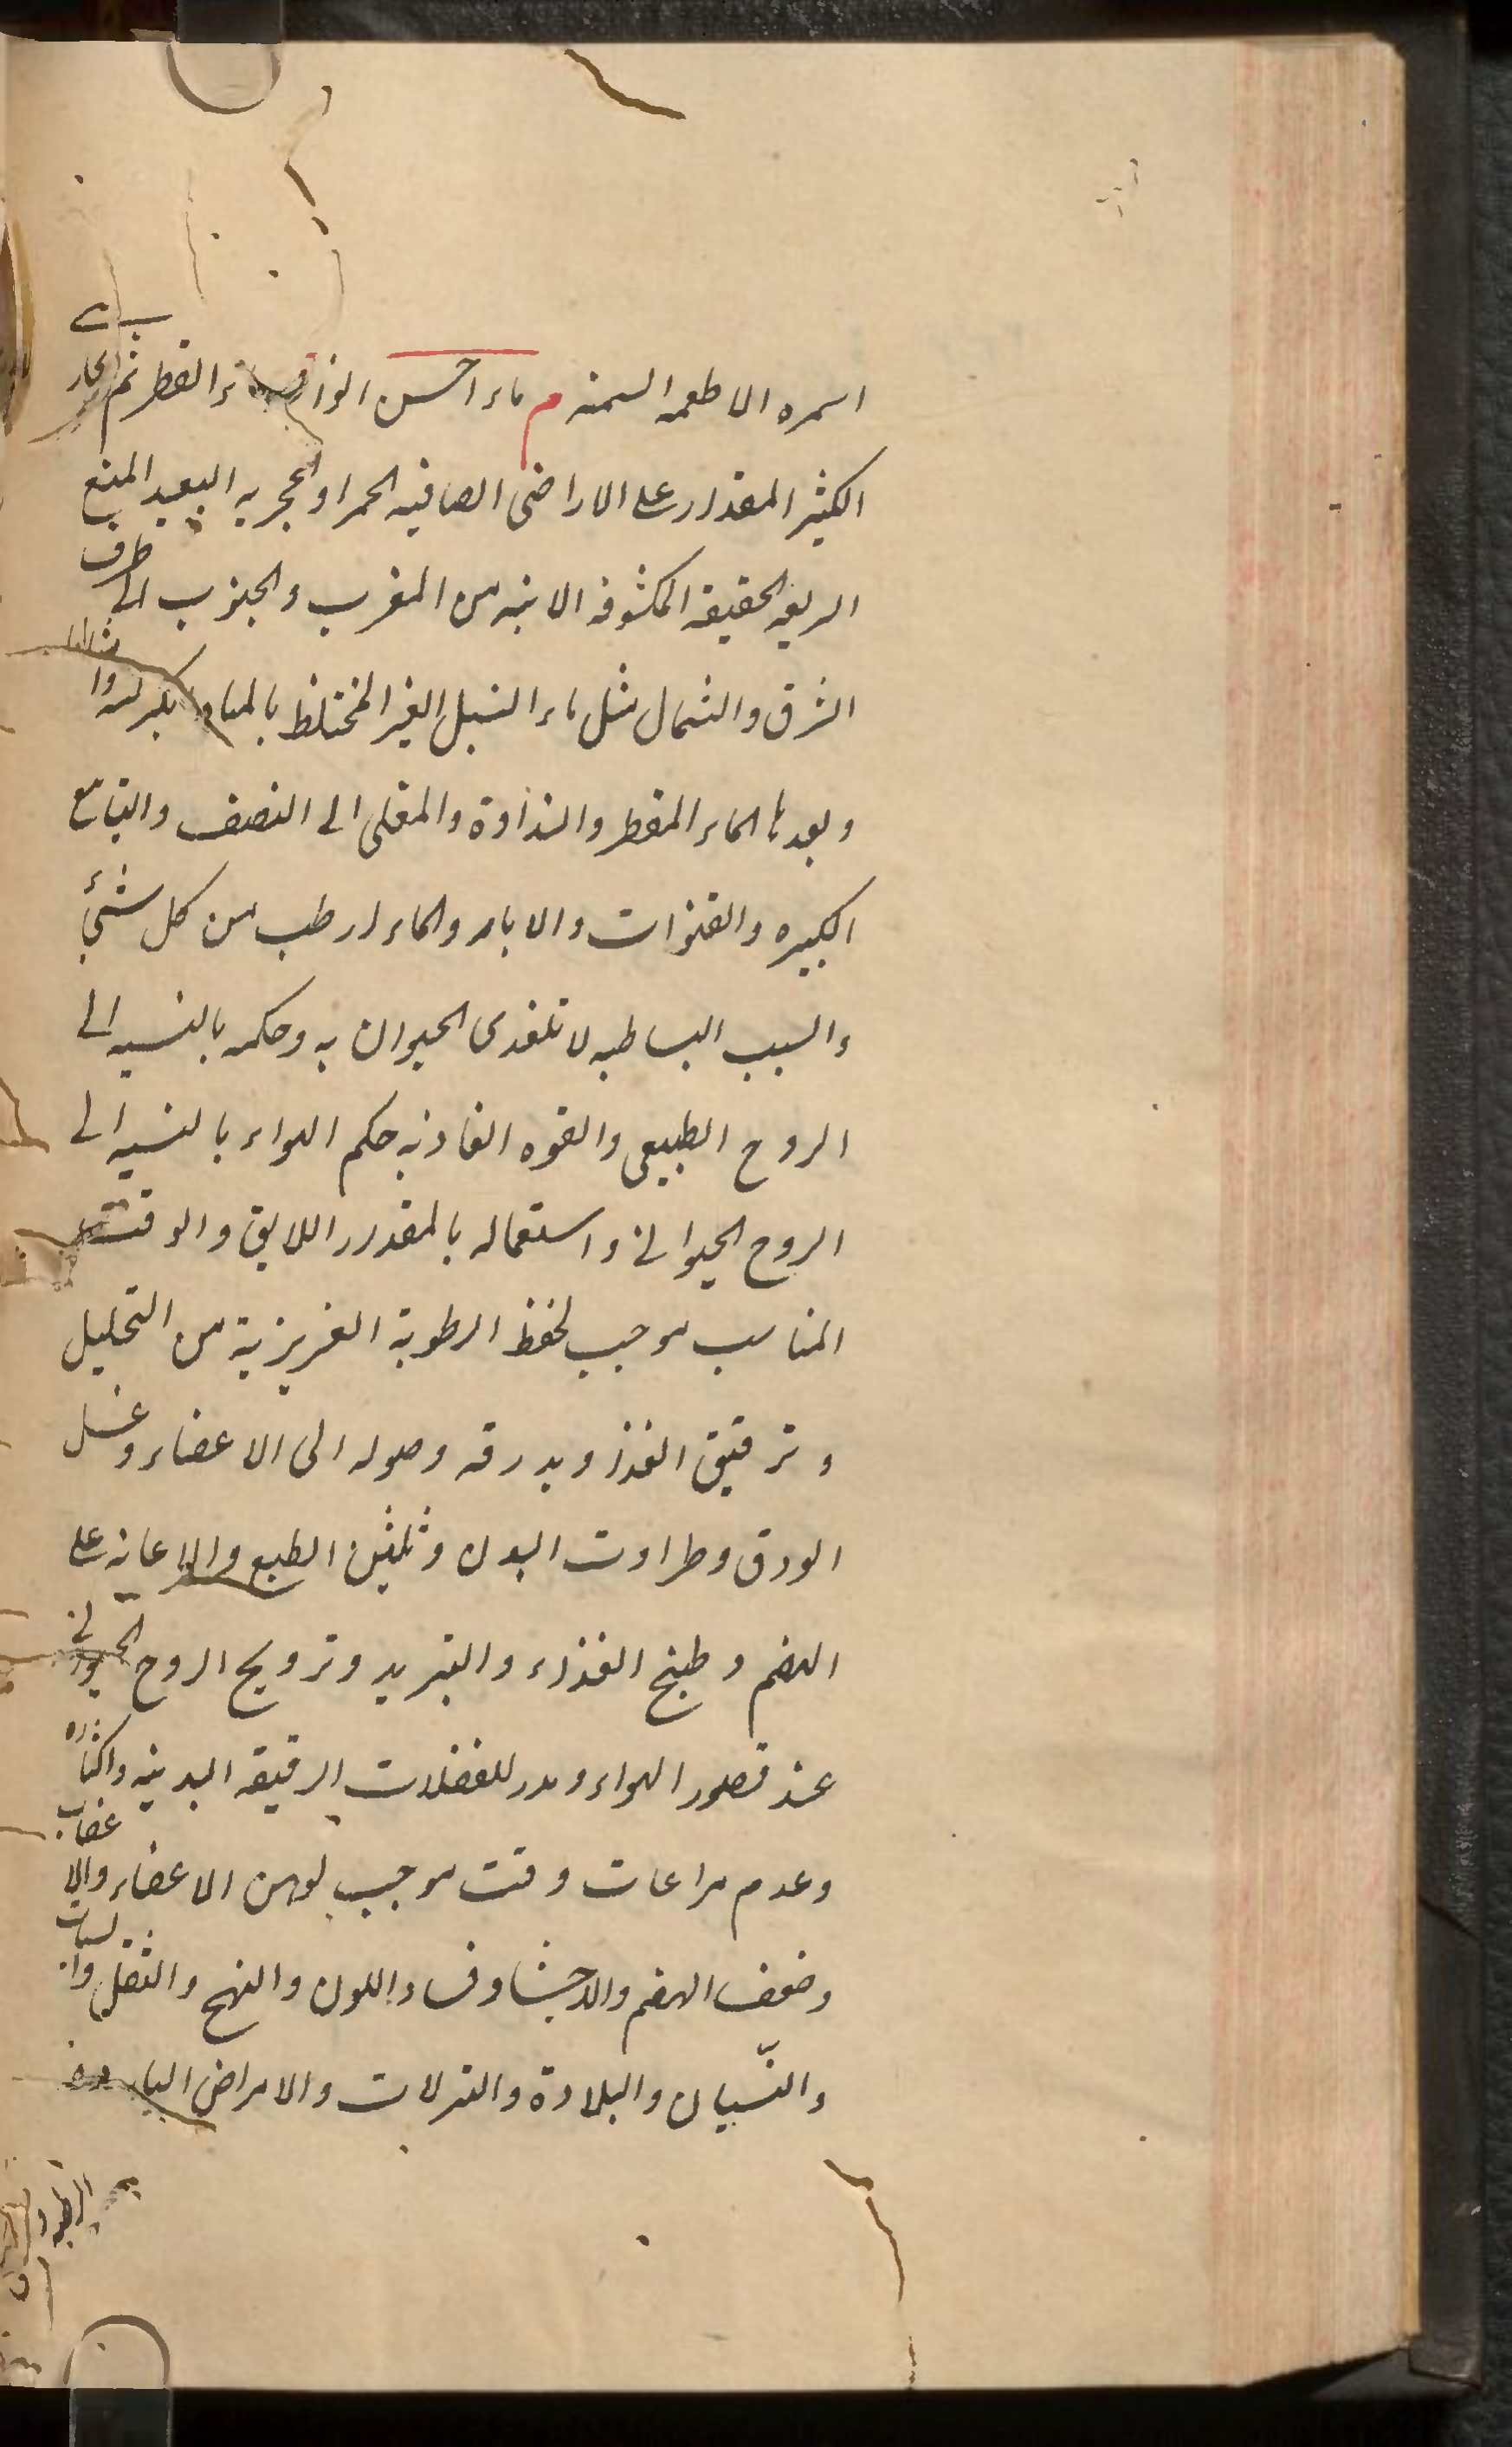 اسمره الاطعمه السمنه م ماء احسن انواعه ماء القطر ثم الجار
الكثير المقدار على الاراضى الصافيه الحمر او الحجريه البعيد المنبع
السريعه الحقيقه المكشوفه الاتيه من المغرب والجنوب الى طرف
الشرق والشمال مثل ماء النيل الغير المختلط بالمياه
وبعدها الماء المقطر والنداوة والمغلى الى النصف والنابع
الكبيره والقنوات والابار والماء ارطب من كل شئ
والسبب البساطيه لا تلغدى الحيوان به وحكمه بالنسبه الى
الروح الطبيعى والقوه الغاذيه حكم الهواء بالنسبه الى
الروح الحيوانى واستعماله بالمقدار اللايق والوقت
المناسب موجب لحفظ الرطوبة الغريزية من التحليل
و ترقيق الغذا وبدرقه وصوله الى الاعضاء وغسل
العرق وطراوت البدن وتليين الطبع والاعانه على
الهضم وطبخ الغذاء والتبريد وترويح الروح الحيوانى
عند قصور الهواء ومدر للفضلات الرقيقه البدنيه واكثاره
وعدم مراعات وقت موجب لوهن الاعضاء والاعصاب
وضعف الهضم والاحشا وفساد اللون والنهج والثقل والسبات
والنّسيان والبلادة والنزلات والامراض البارده
الرطبه